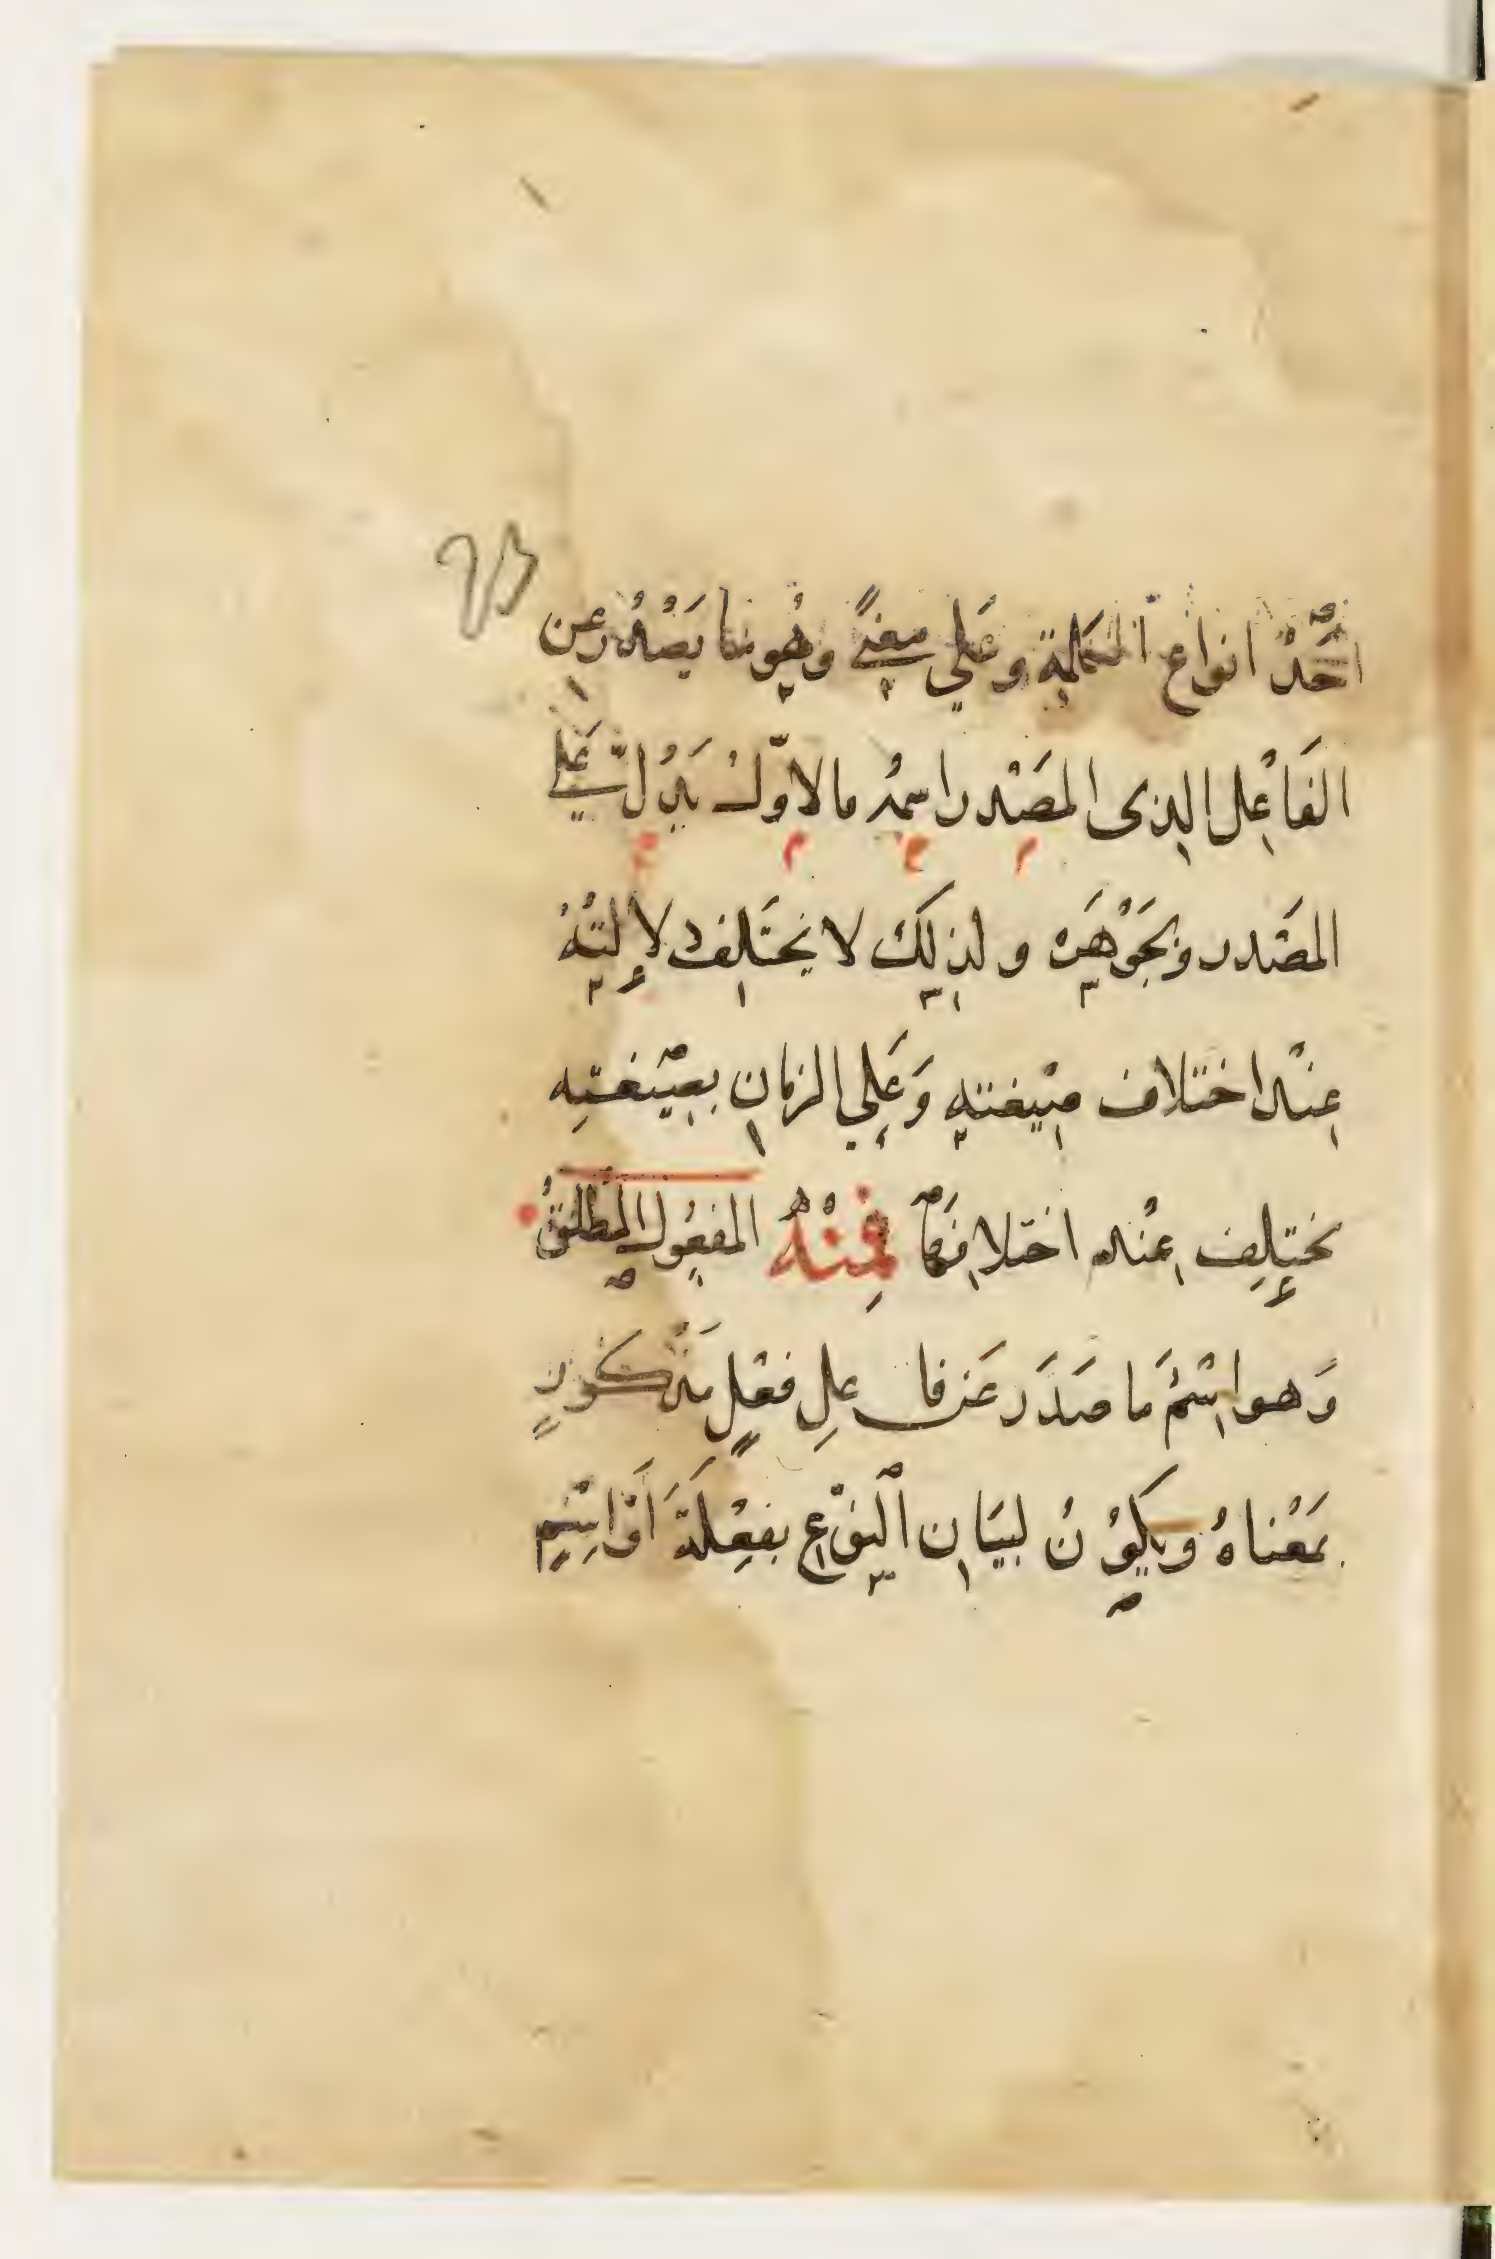 احَدُ انواع الكلمة وعَلي معنيً وهُو ما يَصْدُر عن
الفَاعِل الذى المصَدر اسمُه ما لاوّل يَدُلّ عَلي
المصَدر وبجَوْهَرِه ولذلِك لا يختَلِف دلالتُهُ
عِنْد اختلاف صِيغتِه وَعَلي الزمان بصِيْغتِه
يختلِف عِنْد اختلافها فمِنْهُ المفعُول المُطلقُ
وَهو اسْمُ ما صَدَرَ عَن فاعلِ فعْلٍ مَذْكُورٍ
بمَعْناهُ ويَكُوْنُ لبيَانِ النوْعِ بفِعْلَةَ أَوْ اسْمٍ